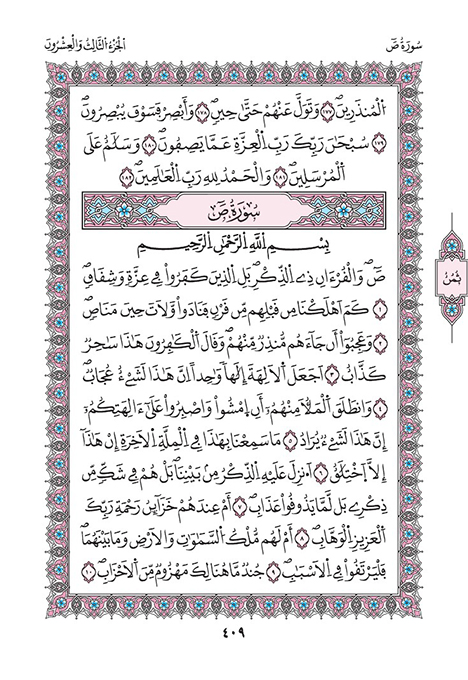 سُورَةُ صٓ
الجُزْءُ الثَّالِثُ وَالْعِشْرُونَ
اَ۬لْمُنذَرِينَۖ ١٧٧ وَتَوَلَّ عَنْهُمْ حَتَّىٰ حِينٖۖ ١٧٨ وَأَبْصِرْ فَسَوْفَ يُبْصِرُونَۖ
١٧٩ سُبْحَٰنَ رَبِّكَ رَبِّ اِ۬لْعِزَّةِ عَمَّا يَصِفُونَۖ ١٨٠ وَسَلَٰمٌ عَلَى
اَ۬لْمُرْسَلِينَۖ ١٨١ وَالْحَمْدُ لِلهِ رَبِّ اِ۬لْعَٰلَمِينَۖ ١٨٢
سُورَةُ صٓ
بِسْمِ اِ۬للَّهِ اِ۬لرَّحْمَٰنِ اِ۬لرَّحِيمِ
صٓۖ وَالْقُرْءَانِ ذِے اِ۬لذِّكْرِۖ بَلِ اِ۬لذِينَ كَفَرُواْ فِے عِزَّةٖ وَشِقَاقٖۖ
١ كَمَ اَهْلَكْنَا مِن قَبْلِهِم مِّن قَرْنٖ فَنَادَواْ وَّلَاتَ حِينَ مَنَاصٖۖ
٢ وَعَجِبُوٓاْ أَن جَآءَهُم مُّنذِرٞ مِّنْهُمْۖ وَقَالَ اَ۬لْكَٰفِرُونَ هَٰذَا سَٰحِرٞ
كَذَّابٌۖ ٣ اَجَعَلَ اَ۬لَالِهَةَ إِلَٰهاٗ وَٰحِداًۖ اِنَّ هَٰذَا لَشَےْءٌ عُجَابٞۖ
٤ وَانطَلَقَ اَ۬لْمَلَأُ مِنْهُمُۥٓ أَنِ اِ۪مْشُواْ وَاصْبِرُواْ عَلَىٰٓ ءَالِهَتِكُمُۥٓۖ
إِنَّ هَٰذَا لَشَےْءٞ يُرَادُۖ ٥ مَا سَمِعْنَا بِهَٰذَا فِے اِ۬لْمِلَّةِ اِ۬لَاخِرَةِ إِنْ هَٰذَآ
إِلَّا اَ۪خْتِلَٰقٌۖ ٦ اَ۟نزِلَ عَلَيْهِ اِ۬لذِّكْرُ مِنۢ بَيْنِنَاۖ بَلْ هُمْ فِے شَكّٖ مِّن
ذِكْرِےۖ بَل لَّمَّا يَذُوقُواْ عَذَابِۖ ٧ أَمْ عِندَهُمْ خَزَآئِنُ رَحْمَةِ رَبِّكَ
اَ۬لْعَزِيزِ اِ۬لْوَهَّابِۖ ٨ أَمْ لَهُم مُّلْكُ اُ۬لسَّمَٰوَٰتِ وَالَارْضِ وَمَا بَيْنَهُمَاۖ
فَلْيَرْتَقُواْ فِے اِ۬لَاسْبَٰبِۖ ٩ جُندٞ مَّا هُنَالِكَ مَهْزُومٞ مِّنَ اَ۬لَاحْزَابِۖ ١٠
ثُمُنُ
٤٠٩